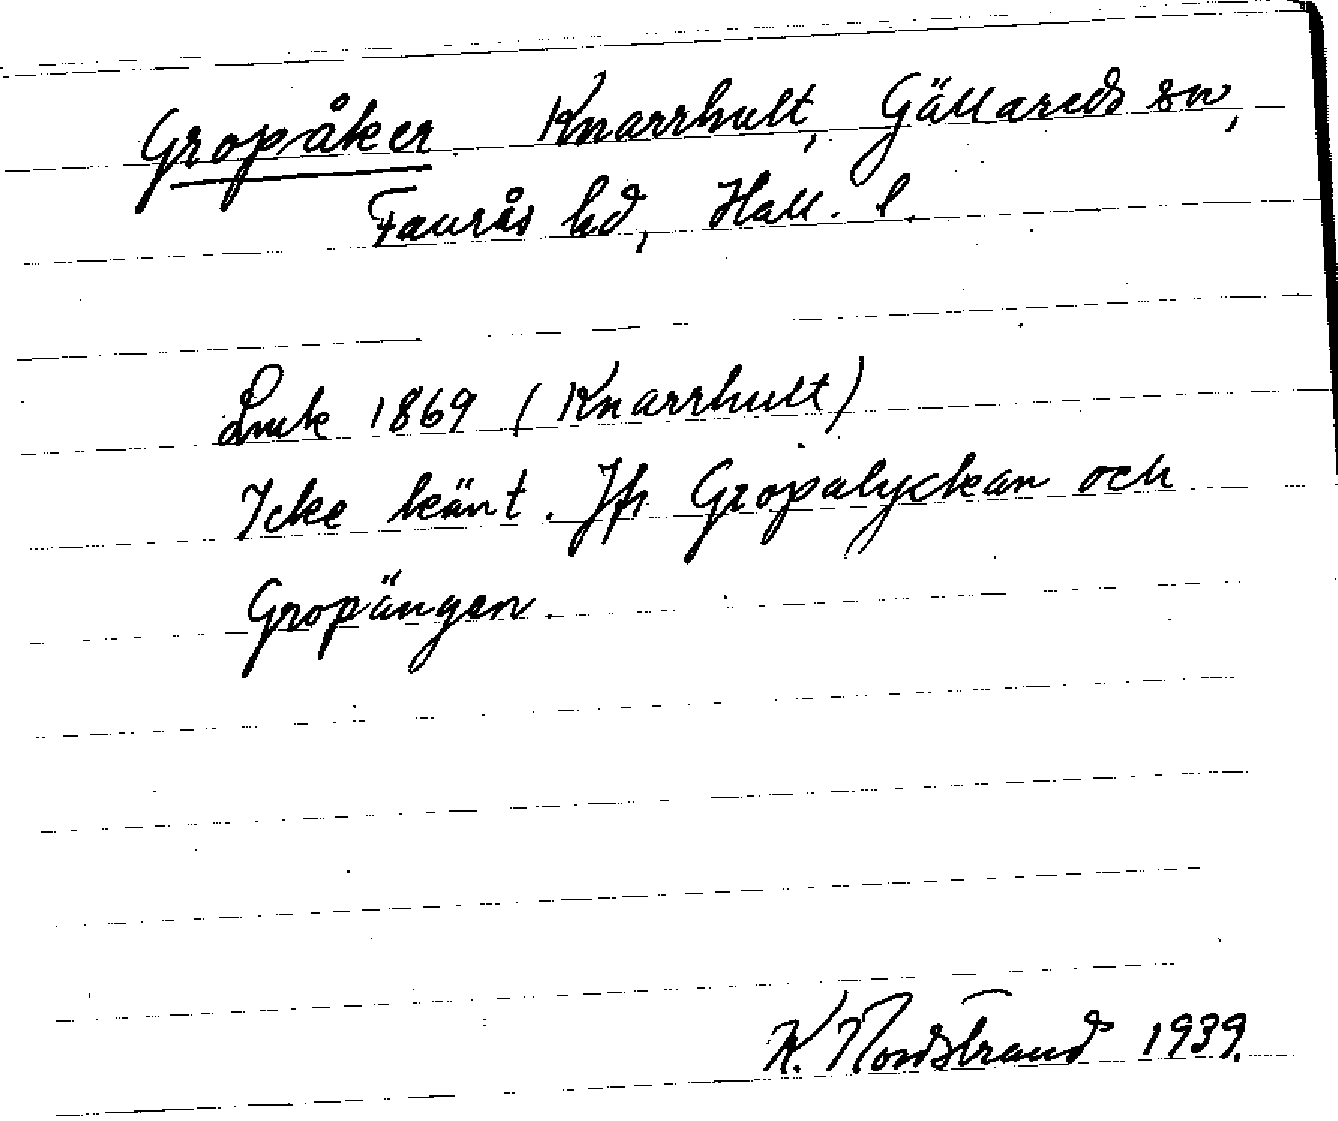 Gropåker Knarrhult, Gällareds sn,
Faurås hd, Hall. l.
Lmk 1869 (Knarrhult)
Icke känt. Jfr Gropalyckan och
Gropängen.
K. Nordstrand 1939.